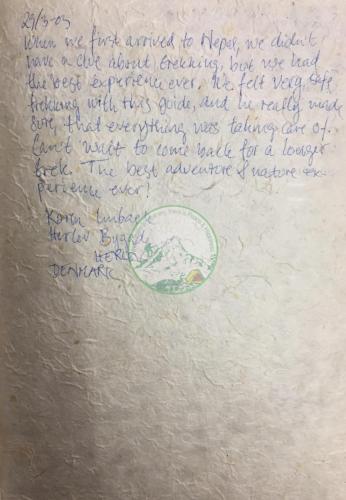 29/3-03
When we first arrived to Nepal, we didn't
have a clue about trekking, but we had
the best experience ever. We felt very safe
trekking with this guide, and he really made
sure, that everything was taking care of.
Can't wait to come back for a longer
trek. The best adventure & nature ex-
perience ever!
Karen
Herlev
HERLEV
DENMARK